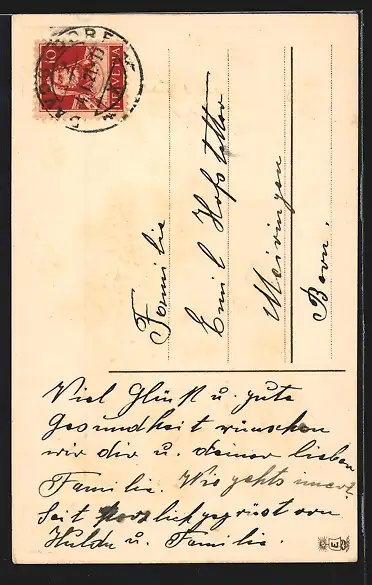 10
HELVETIA
Familie
Emil Hofstetter
Meiringen
Bern.
Viel Glück u. gute
Gesundheit wünschen
wir dir u. deiner lieben
Familie. Wie gehts immer.
Seit herzlich gegrüst von
Hulda u. Familie.
E